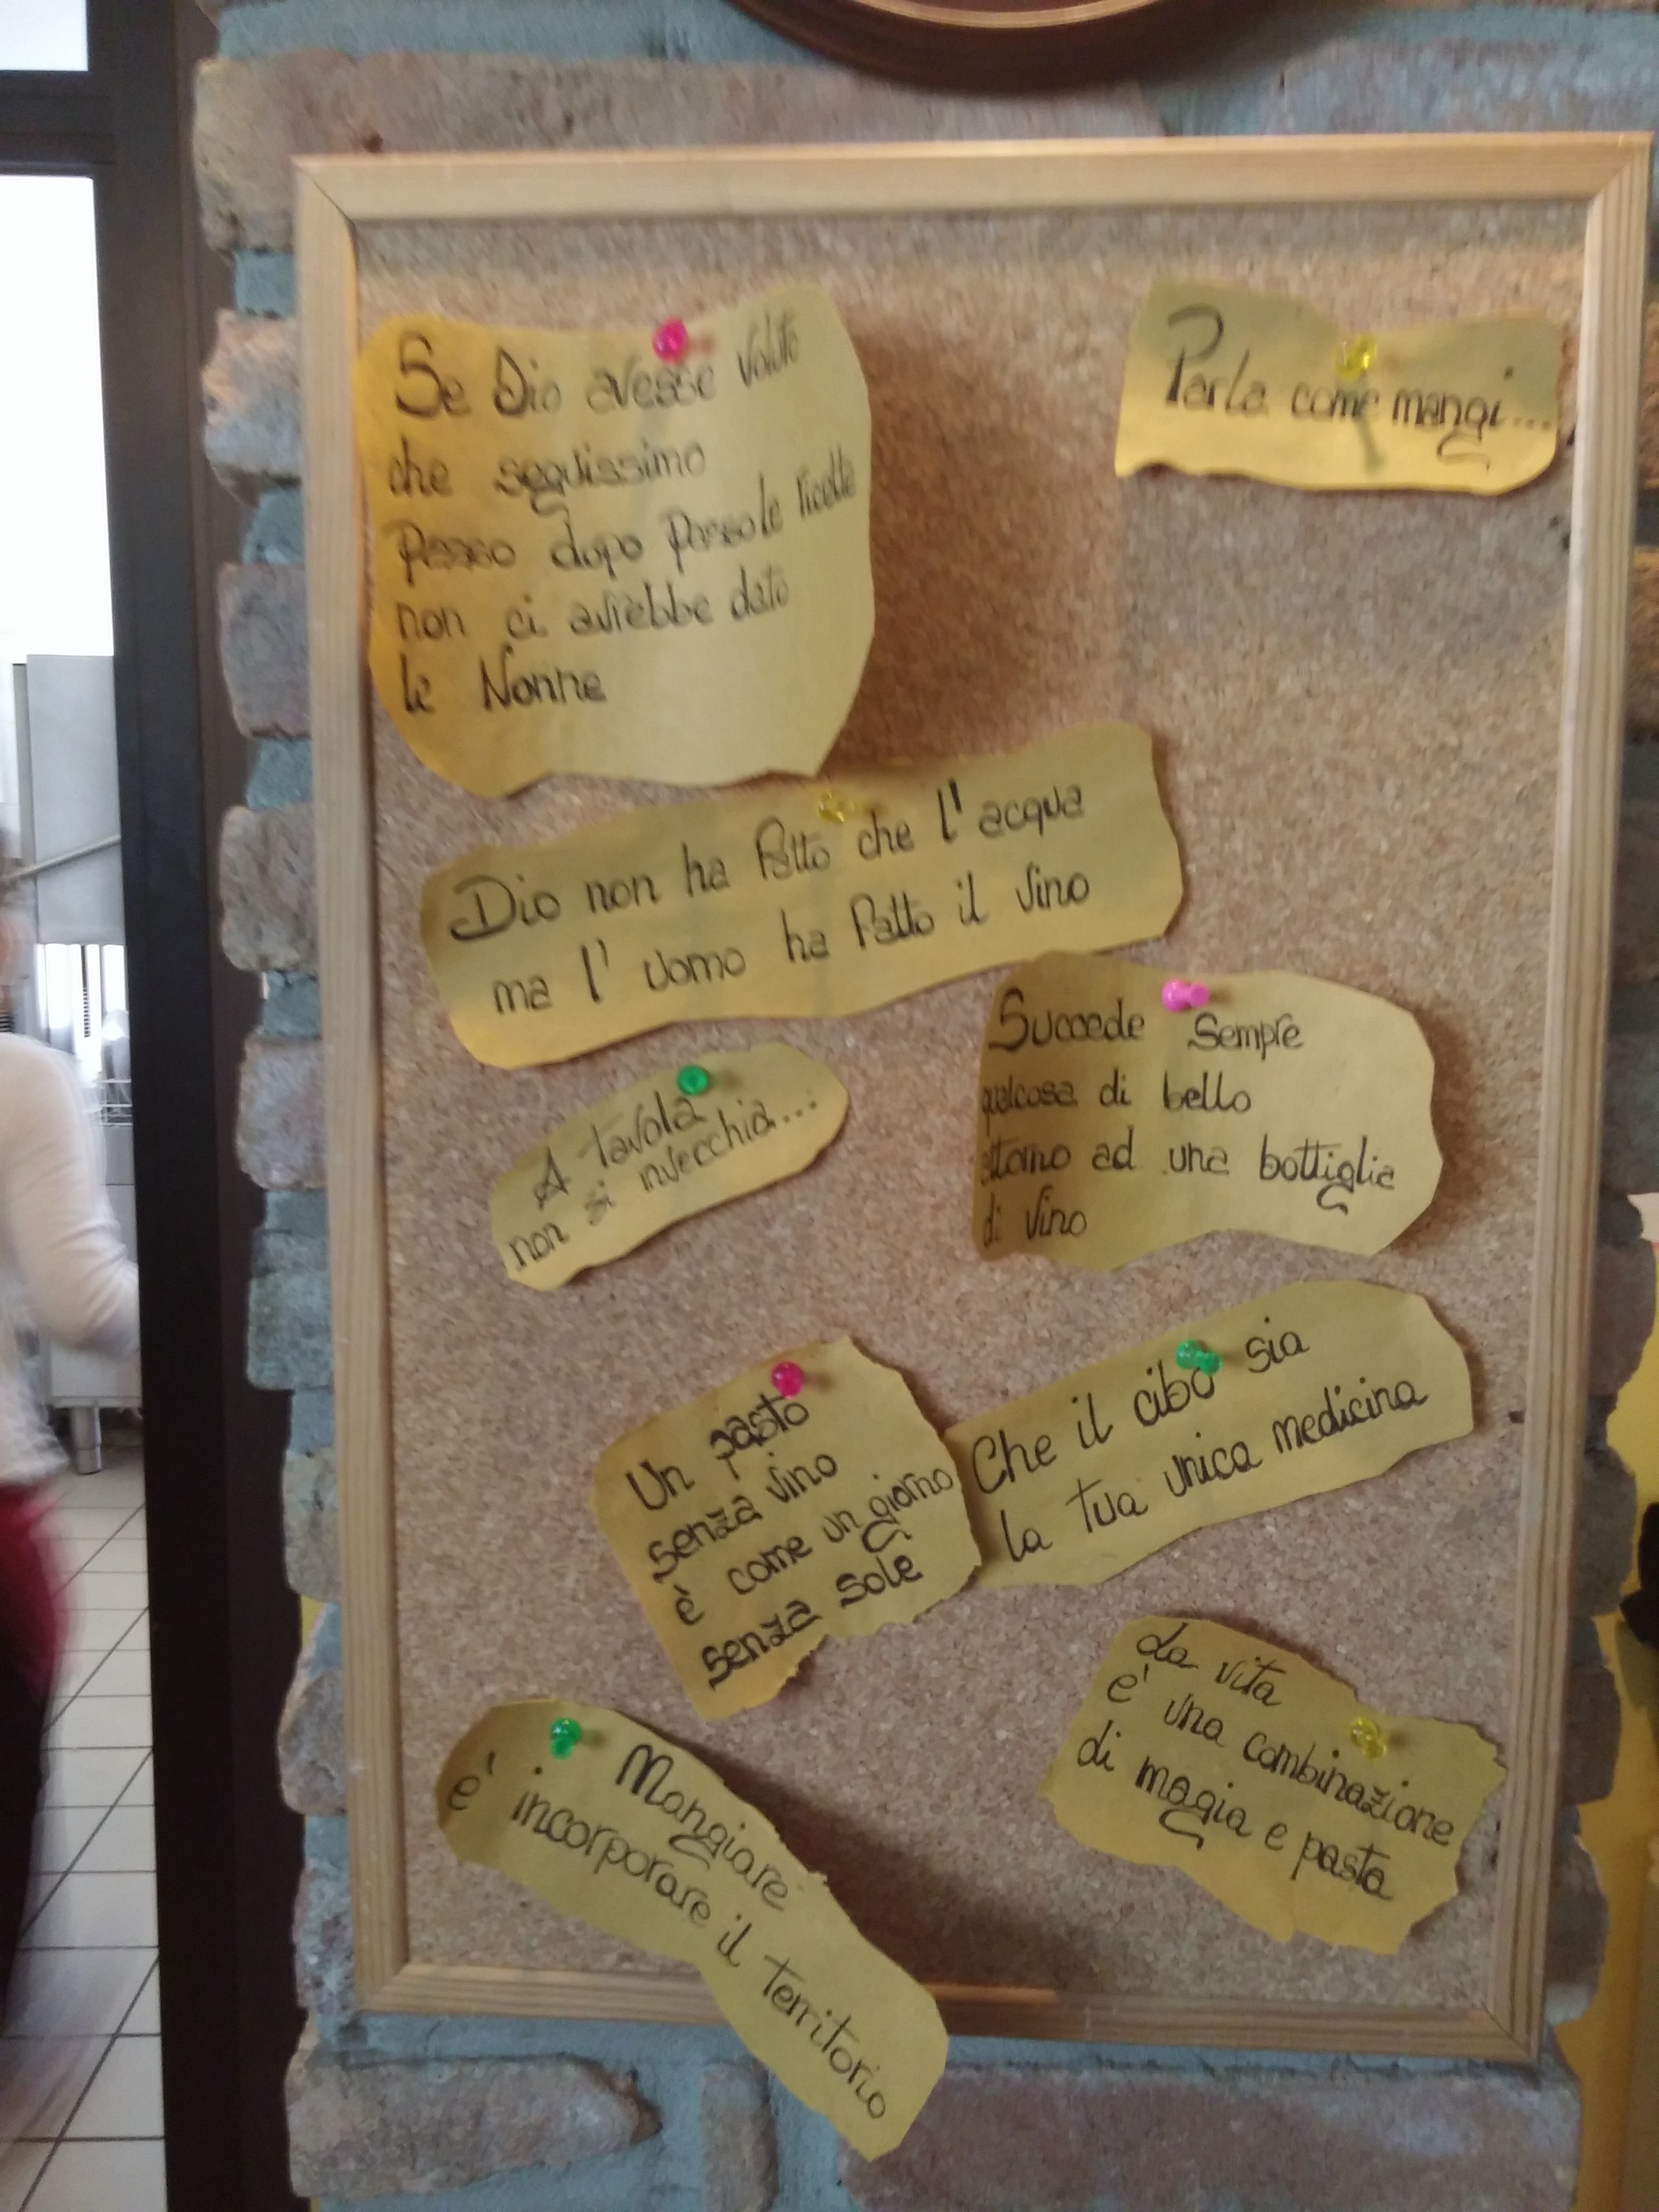 Se Dio avesse voluto
che seguissimo
passo dopo passo le ricette
non ci avrebbe dato
le Nonne
Parla come mangi...
Dio non ha fatto che l'acqua
ma l'uomo ha fatto il vino
A tavola
non si invecchia...
Succede sempre
qualcosa di bello
attorno ad una bottiglia
di vino
Un pasto
senza vino
è come un giorno
senza sole
Che il cibo sia
la tua unica medicina
La vita
e' una combinazione
di magia e pasta
Mangiare
e' incorporare il territorio